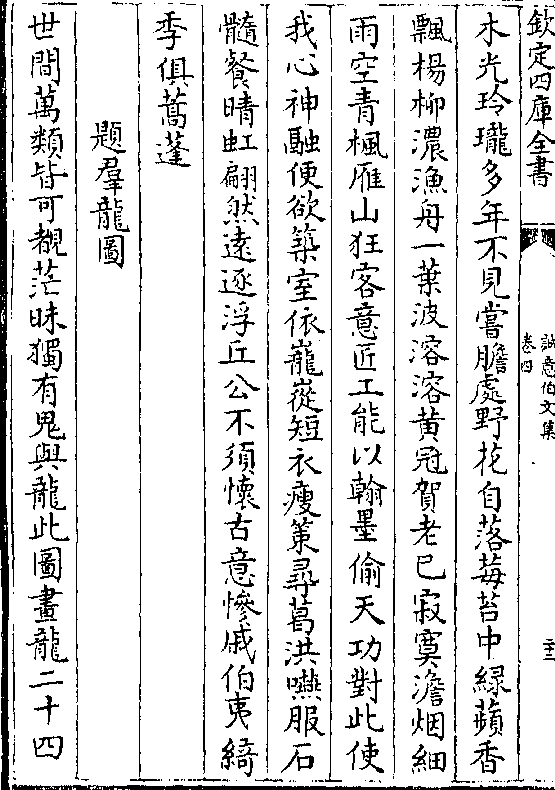 欽定四庫全書
誠意伯文集
卷四
二十二
木光玲瓏多年不見嘗膽處野花自落莓苔中緑蘋香
飄楊柳濃漁舟一葉波溶溶黄冠賀老已寂寞澹烟細
雨空青楓雁山狂客意匠工能以翰墨偷天功對此使
我心神融便欲築室依巃嵸短衣瘦策尋葛洪嚥服石
髓餐晴虹翩然遠逐浮丘公不須懷古意慘戚伯夷綺
季俱蒿蓬
題羣龍圖
世間萬類皆可覩茫昧獨有鬼與龍此圖畫龍二十四